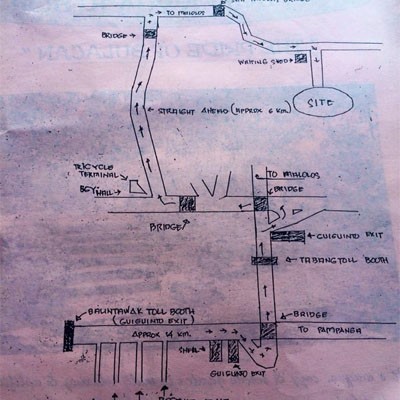 TO MALOLOS
BRIDGE
WAITING SHED
SITE
STRAIGHT AHEAD (APPROX 6 KM.)
TRICYCLE
TERMINAL
BGY HALL
TO MALOLOS
BRIDGE
BRIDGE
GUIGUINTO EXIT
TABANG TOLL BOOTH
BALINTAWAK TOLL BOOTH
(GUIGUINTO EXIT)
BRIDGE
APPROX 14 KM.
TO PAMPANGA
SHELL
GUIGUINTO EXIT